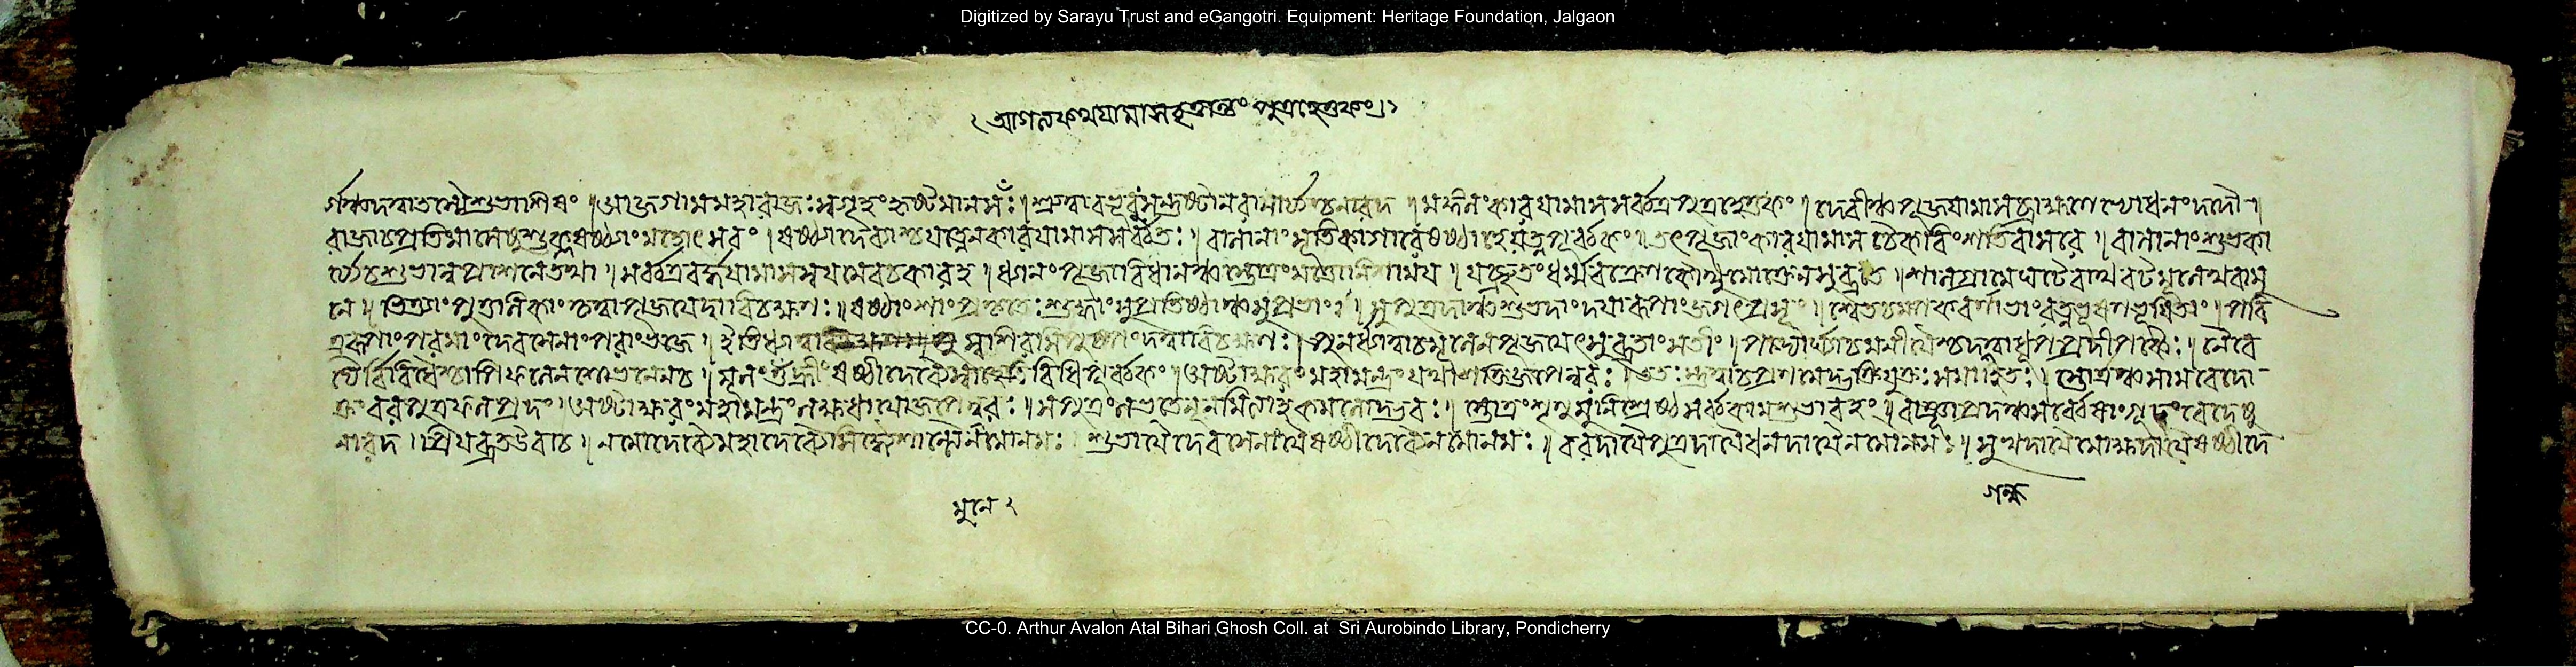 Digitized by Sarayu Trust and eGangotri. Equipment: Heritage Foundation, Jalgaon
পুত্রহেতুকং
শুভাশিষং ॥ আজগামমহারাজঃস্বগৃহংহৃষ্টমানসঃ। নারদ ॥ মঙ্গলংকারয়ামাসসর্ব্বত্রপুত্রহেতুকং ॥ দেবীঞ্চপূজয়ামাসব্রাহ্মণেভ্যোধনংদদৌ ॥
রাজাচপ্রতিমাসেষুশুক্লষষ্ঠ্যাংমহোৎসবং ॥ ষষ্ঠ্যাদেব্যাশ্চযত্নেনকারয়ামাসসর্ব্বতঃ ॥ বালানাংসূতিকাগারেষষ্ঠাহেযত্নপূর্ব্বকং ॥ তৎপূজাংকারয়ামাস চৈকবিংশতিবাসরে ॥ বালানাংশুভকা
র্য্যেচশুভান্নপ্রাশনেতথা ॥ সর্ব্বত্রবর্দ্ধয়ামাসস্বয়মেবচকারহ ॥ ধ্যানংপূজাবিধানঞ্চস্তোত্রংমত্তোনিশাময় ॥ যচ্ছ্রুতংধর্ম্মবক্ত্রেণকৌথুমোক্তঞ্চসুব্রত ॥ শালগ্রামেঘটেবাথবটমূলেথবামু
নে ॥ ভিত্ত্যাংপুত্তলিকাংকৃত্বাপূজয়েদ্বাবিচক্ষণঃ ॥ ষষ্ঠাংশাংপ্রকৃতেঃশুদ্ধাংসুপ্রতিষ্ঠাঞ্চসুব্রতাং ॥ সুপুত্রদাঞ্চশুভদাংদয়ারূপাংজগৎপ্রসূং ॥ শ্বেতচম্পকবর্ণাভাংরত্নভূষণভূষিতাং ॥ পবি
ত্ররূপাংপরমাংদেবসেনাংপরাংভজে ॥ ইতিধ্যাত্বা স্বশিরসিপুষ্পংদত্ত্বাবিচক্ষণঃ ॥ পুনর্ধ্যাত্বাচমূলেনপূজয়েৎসুব্রতাংসতীং ॥ পাদ্যার্ঘ্যাচমনীয়ৈশ্চগন্ধপুষ্পপ্রদীপকৈঃ ॥ নৈবে
দ্যৈর্বিবিধৈশ্চাপিফলেনশোভনেনচ ॥ মূলংওঁহ্রীঁষষ্ঠীদেব্যৈস্বাহেতিবিধিপূর্ব্বকং ॥ অষ্টাক্ষরংমহামন্ত্রংযথাশক্তিজপেন্নরঃ ॥ ততঃস্তুত্বাচপ্রণমেদ্ভক্তিযুক্তঃসমাহিতঃ ॥ স্তোত্রঞ্চসামবেদো
ক্তংবরপুত্রফলপ্রদং ॥ অষ্টাক্ষরংমহামন্ত্রংলক্ষধাযোজপেন্নরঃ ॥ সপুত্রংলভতেনূনমিত্যাহকমলোদ্ভবঃ ॥ স্তোত্রংশৃণুমুনিশ্রেষ্ঠসর্ব্বকামশুভাবহং ॥ বাঞ্ছাপ্রদঞ্চসর্ব্বেষাংগূঢ়ংবেদেষু
নারদ ॥ প্রিয়ব্রতউবাচ ॥ নমোদেব্যৈমহাদেব্যৈসিদ্ধ্যৈশান্ত্যৈনমোনমঃ ॥ শুভায়ৈদেবসেনায়ৈষষ্ঠীদেব্যৈনমোনমঃ ॥ বরদায়ৈপুত্রদায়ৈধনদায়ৈনমোনমঃ ॥ সুখদায়ৈমোক্ষদায়ৈষষ্ঠীদে
মুনে ২
CC-0. Arthur Avalon Atal Bihari Ghosh Coll. at Sri Aurobindo Library, Pondicherry